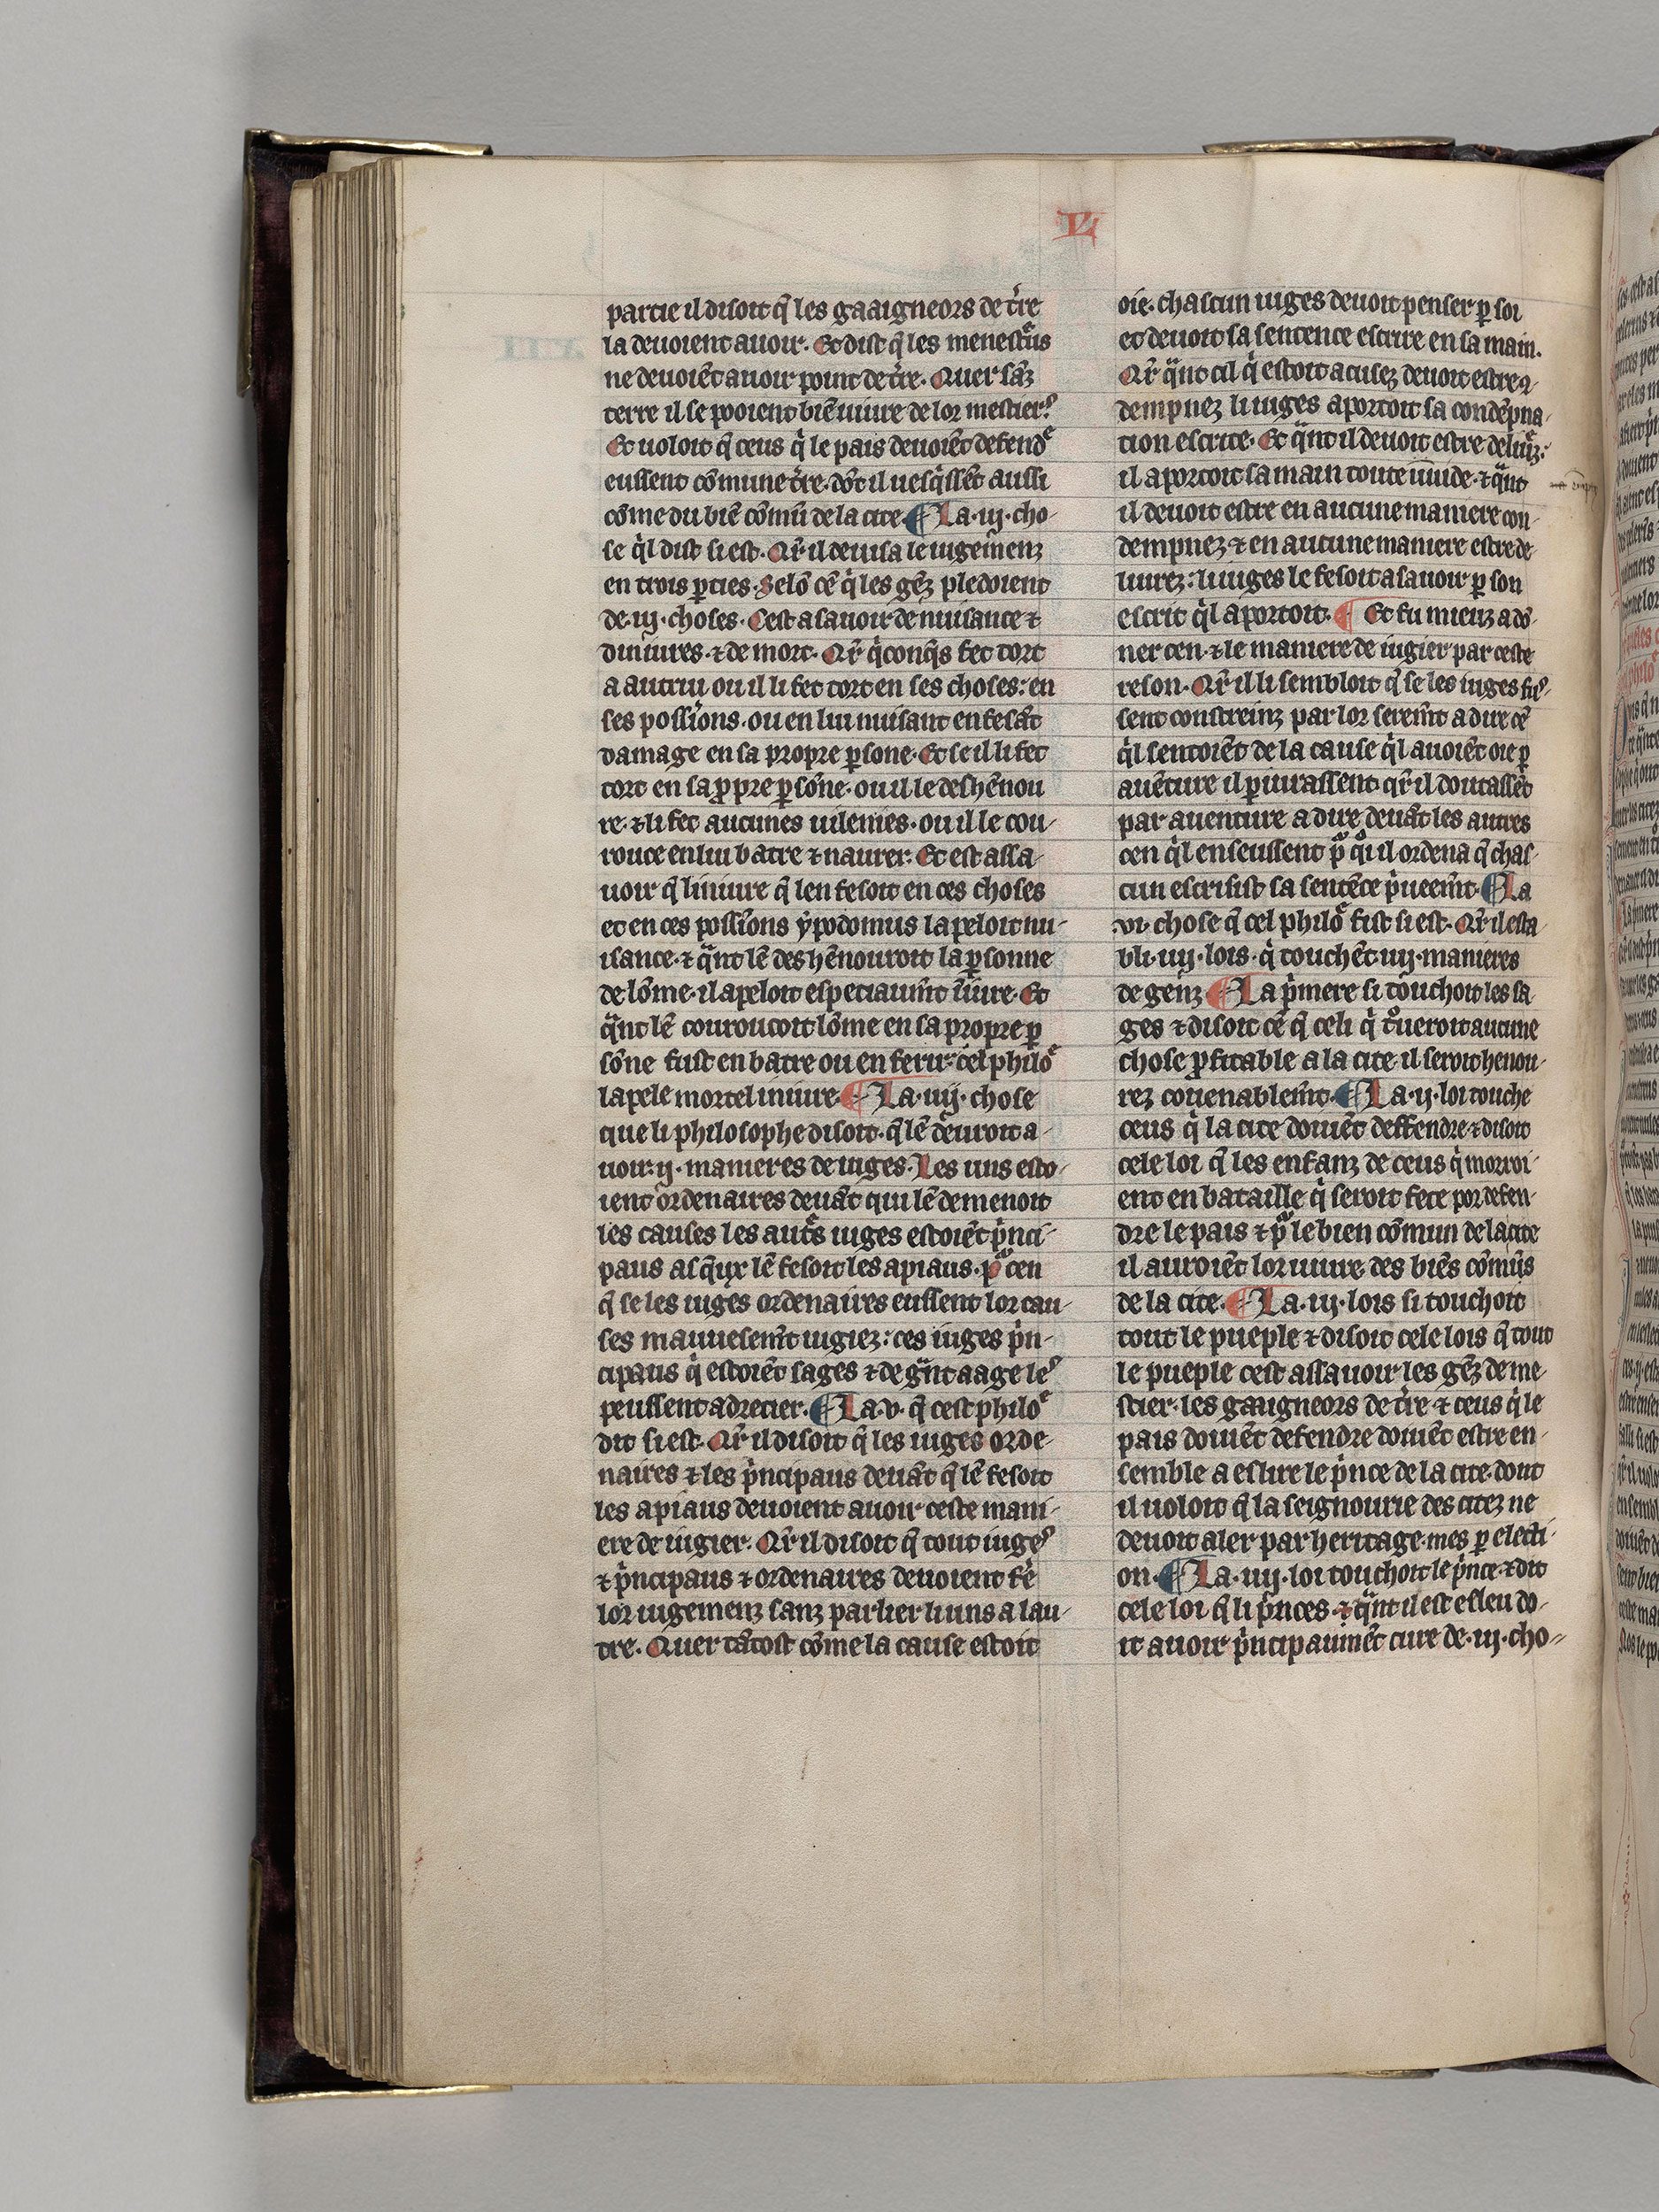 VI
partie il disoit q̃ les gaaigneors de t̾re
la deuoient auoir. Et dist q̃ les menestᵉus
ne deuoiẽt auoir point de t̾re. Quer sãz
terre il se pooient biẽ uiure de lor mestier⁹.
Et uoloit q̃ ceus qͥ le pais deuoiẽt defendᵉ
eussent cõmune t̾re. dõt il uesqͥssẽt aussi
cõme du biẽ cõmũ de la cite. ¶ La .iij. cho-
se qͥl dist si est. Qr̃ il deuisa le iugemẽnz
en trois ꝑties. Selõ cẽ qͥ les gẽz pledoient
de .iij. choses. Cest asauoir de nuisance ⁊
diniures. ⁊ de mort. Qr̃ qͥconqͣs fet tort
a autrui ou il li fet tort en ses choses: en
ses possiõns. ou en lui nuisant en fesãt
damage en sa propre ꝑsone. Et se il li fet
tort en sa ꝓpre ꝑsõne. ou il le deshẽnou
re. ⁊ li fet aucunes uilenies. ou il le cou-
rouce en lui batre ⁊ naurer. Et est assa-
uoir q̃ liniure q̃ len fesoit en ces choses
et en ces possiõns ẏpodomus lapeloit nu-
isance. ⁊ qͣnt lẽ deshẽnouroit la ꝑsonne
de lõme. il apeloit especiaumñt iniure. Et
qͣnt lẽ couroucoit lõme en sa propre ꝑ
sõne fust en batre ou en ferir: cel philoᵉ
lapele mortel iniure. ¶ La .iiij. chose
que li philosophe disoit. q̃ lẽ deuroit a-
uoir .ij. manieres de iuges. Les uns esto-
ient ordenaires deuãt qui lẽ demenoit
les causes les autᵉs iuges estoiẽt pͥnci-
paus asqͣux lẽ fesoit les apiaus. pͦ cen
q̃ se les iuges ordenaires eussent lor cau-
ses mauuesemñt iugiez: ces iuges pͥn-
cipaus qͥ estoiẽt sages ⁊ de gͣnt aage le⁹
peussent adrecier. ¶ La .v. q̃ cest philoᵉ
dit si est. Qr̃ il disoit q̃ les iuges orde-
naires ⁊ les pͥncipaus deuãt q̃ lẽ fesoit
les apiaus deuoient auoir ceste mani-
ere de iugier. Qr̃ il disoit q̃ tout iuge⁹
⁊ pͥncipaus ⁊ ordenaires deuoient fẽ
lor iugemenz sanz parlier li uns a lau-
tre. Quer tãtost cõme la cause estoit
oie. chascun iuges deuoit penser ꝑ soi
et deuoit sa sentence escrire en sa main.
Qr̃ qͣnt cil qͥ estoit acusez deuoit estre ꝯ-
dempnez li iuges aportoit sa condẽpna-
tion escrite. Et qͣnt il deuoit estre deliuᵉz:
il aportoit sa main toute uuide. ⁊ qͣnt
il deuoit estre en aucune maniere con-
dempnez ⁊ en aucune maniere estre de-
liurez: li iuges le fesoit asauoir ꝑ son
escrit qͥl aportoit. ¶ Et fu mieuz a dõ-
ner cen. ⁊ le maniere de iugier par ceste
reson. Qr̃ il li sembloit q̃ se les iuges fus-
sent constreinz par lor seremñt a dire cẽ
qͥl sentoiẽt de la cause qͥl auoiẽt oie ꝑ
auẽture il ꝑiurassent qr̃ il doutassẽt
par auenture a dire deuãt les autres
cen qͥl en seussent pͦ qͦi il ordena q̃ chas-
cun escrisist sa sentẽce pͥueemñt. ¶ La
.vi. chose q̃ cel philoᵉ fist si est. Qr̃ il esta-
bli .iiij. lois. qͥ touchẽt iiij. manieres
de genz. ¶ La pͥmere si touchoit les sa
ges ⁊ disoit cẽ q̃ celi qͥ tͦueroit aucune
chose ꝓfitable a la cite. il seroit henou-
rez couenablemñt. ¶ La .ij. loi touche
ceus qͥ la cite doiuẽt deffendre. ⁊ disoit
cele loi q̃ les enfanz de ceus qͥ morroi-
ent en bataille qͥ seroit fete por defen-
dre le pais ⁊ pͦ le bien cõmun de la cite
il auroiẽt lor uiure des biẽs cõmũs
de la cite. ¶ La .iij. lois si touchoit
tout le pueple ⁊ disoit cele lois q̃ tout
le pueple cest assauoir les gẽz de me
stier. les gaaigneors de t̾re ⁊ ceus qͥ le
pais doiuẽt defendre doiuẽt estre en-
semble a eslire le pͥnce de la cite. dont
il uoloit q̃ la seignourie des citez ne
deuoit aler par heritage. mes ꝑ electi-
on. ¶ La .iiij. loi touchoit le pͥnce. ⁊ dit
cele loi q̃ li pͥnces. ⁊ qͣnt il est esleu do-
it auoir pͥncipaumẽt cure de .iij. cho-